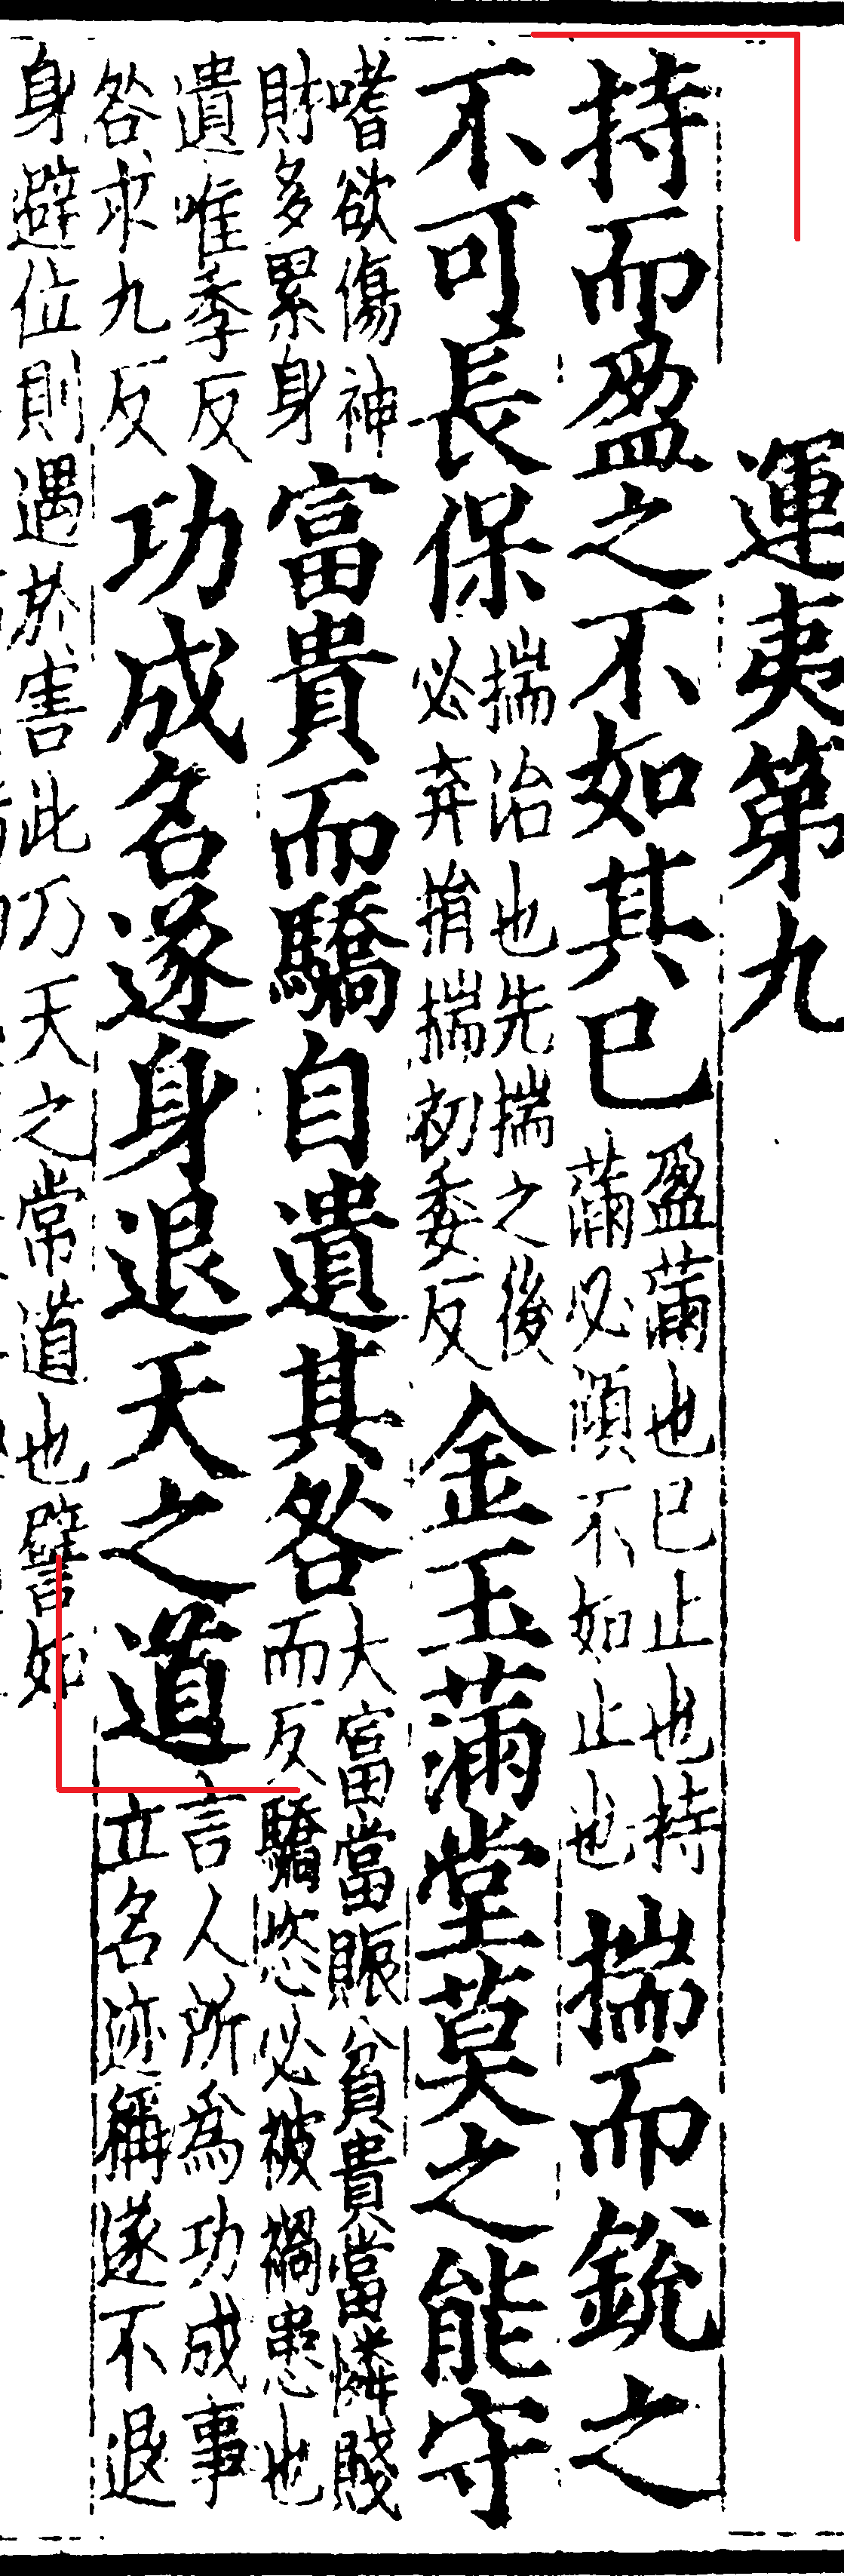 運夷第九
持而盈之不如其已
盈滿也已止也持
滿必傾不如止也
揣而銳之
不可長保
揣治也先揣之後
必弃捐揣初委反
金玉滿堂莫之能守
嗜欲傷神
財多累身
富貴而驕自遺其咎
大富當賑貧貴當憐賤
而反驕恣必被禍患也
遺唯季反
咎求九反
功成名遂身退天之道
言人所爲功成事
立名迹稱遂不退
身避位則遇於害此乃天之常道也譬如